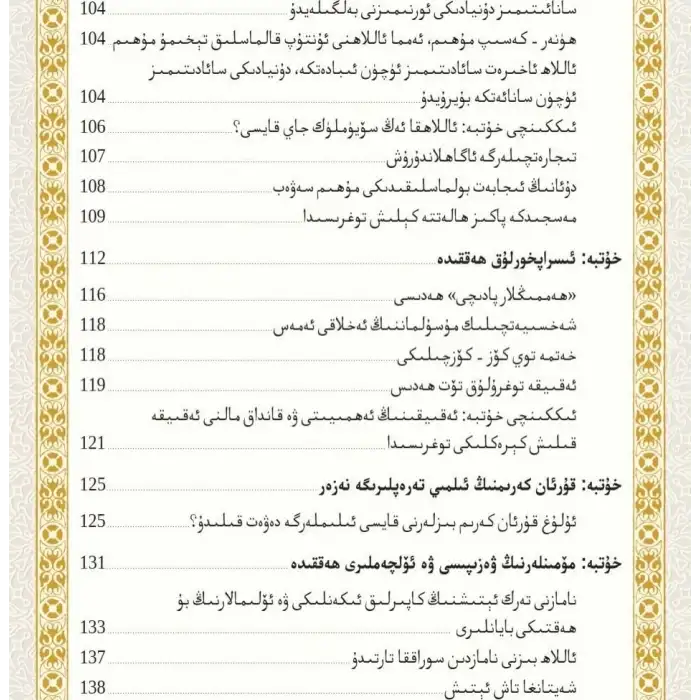 سانائىتىمىز دۇنيادىكى ئورنىمىزنى بەلگىلەيدۇ 104
ھۈنەر - كەسىپ مۇھىم، ئەمما ئاللاھنى ئۇنتۇپ قالماسلىق تېخىمۇ مۇھىم 104
ئاللاھ ئاخىرەت سائادىتىمىز ئۈچۈن ئىبادەتكە، دۇنيادىكى سائادىتىمىز
ئۈچۈن سانائەتكە بۇيرۇيدۇ 104
ئىككىنچى خۇتبە: ئاللاھقا ئەڭ سۆيۈملۈك جاي قايسى؟ 106
تىجارەتچىلەرگە ئاگاھلاندۇرۇش 107
دۇئانىڭ ئىجابەت بولماسلىقىدىكى مۇھىم سەۋەب 108
مەسجىدكە پاكىز ھالەتتە كېلىش توغرىسىدا 109
خۇتبە: ئىسراپخورلۇق ھەققىدە 112
«ھەممىڭلار پادىچى» ھەدىسى 116
شەخسىيەتچىلىك مۇسۇلماننىڭ ئەخلاقى ئەمەس 118
خەتمە توي كۆز - كۆزچىلىكى 118
ئەقىقە توغرۇلۇق تۆت ھەدىس 119
ئىككىنچى خۇتبە: ئەقىقىنىڭ ئەھمىيىتى ۋە قانداق مالنى ئەقىقە
قىلىش كېرەكلىكى توغرىسىدا 121
خۇتبە: قۇرئان كەرىمنىڭ ئىلمىي تەرەپلىرىگە نەزەر 125
ئۇلۇغ قۇرئان كەرىم بىزلەرنى قايسى ئىلىملەرگە دەۋەت قىلىدۇ؟ 125
خۇتبە: مۆمىنلەرنىڭ ۋەزىپىسى ۋە ئۆلچەملىرى ھەققىدە 131
نامازنى تەرك ئېتىشنىڭ كاپىرلىق ئىكەنلىكى ۋە ئۆلىمالارنىڭ بۇ
ھەقتىكى بايانلىرى 133
ئاللاھ بىزنى نامازدىن سوراققا تارتىدۇ 137
شەيتانغا تاش ئېتىش 138